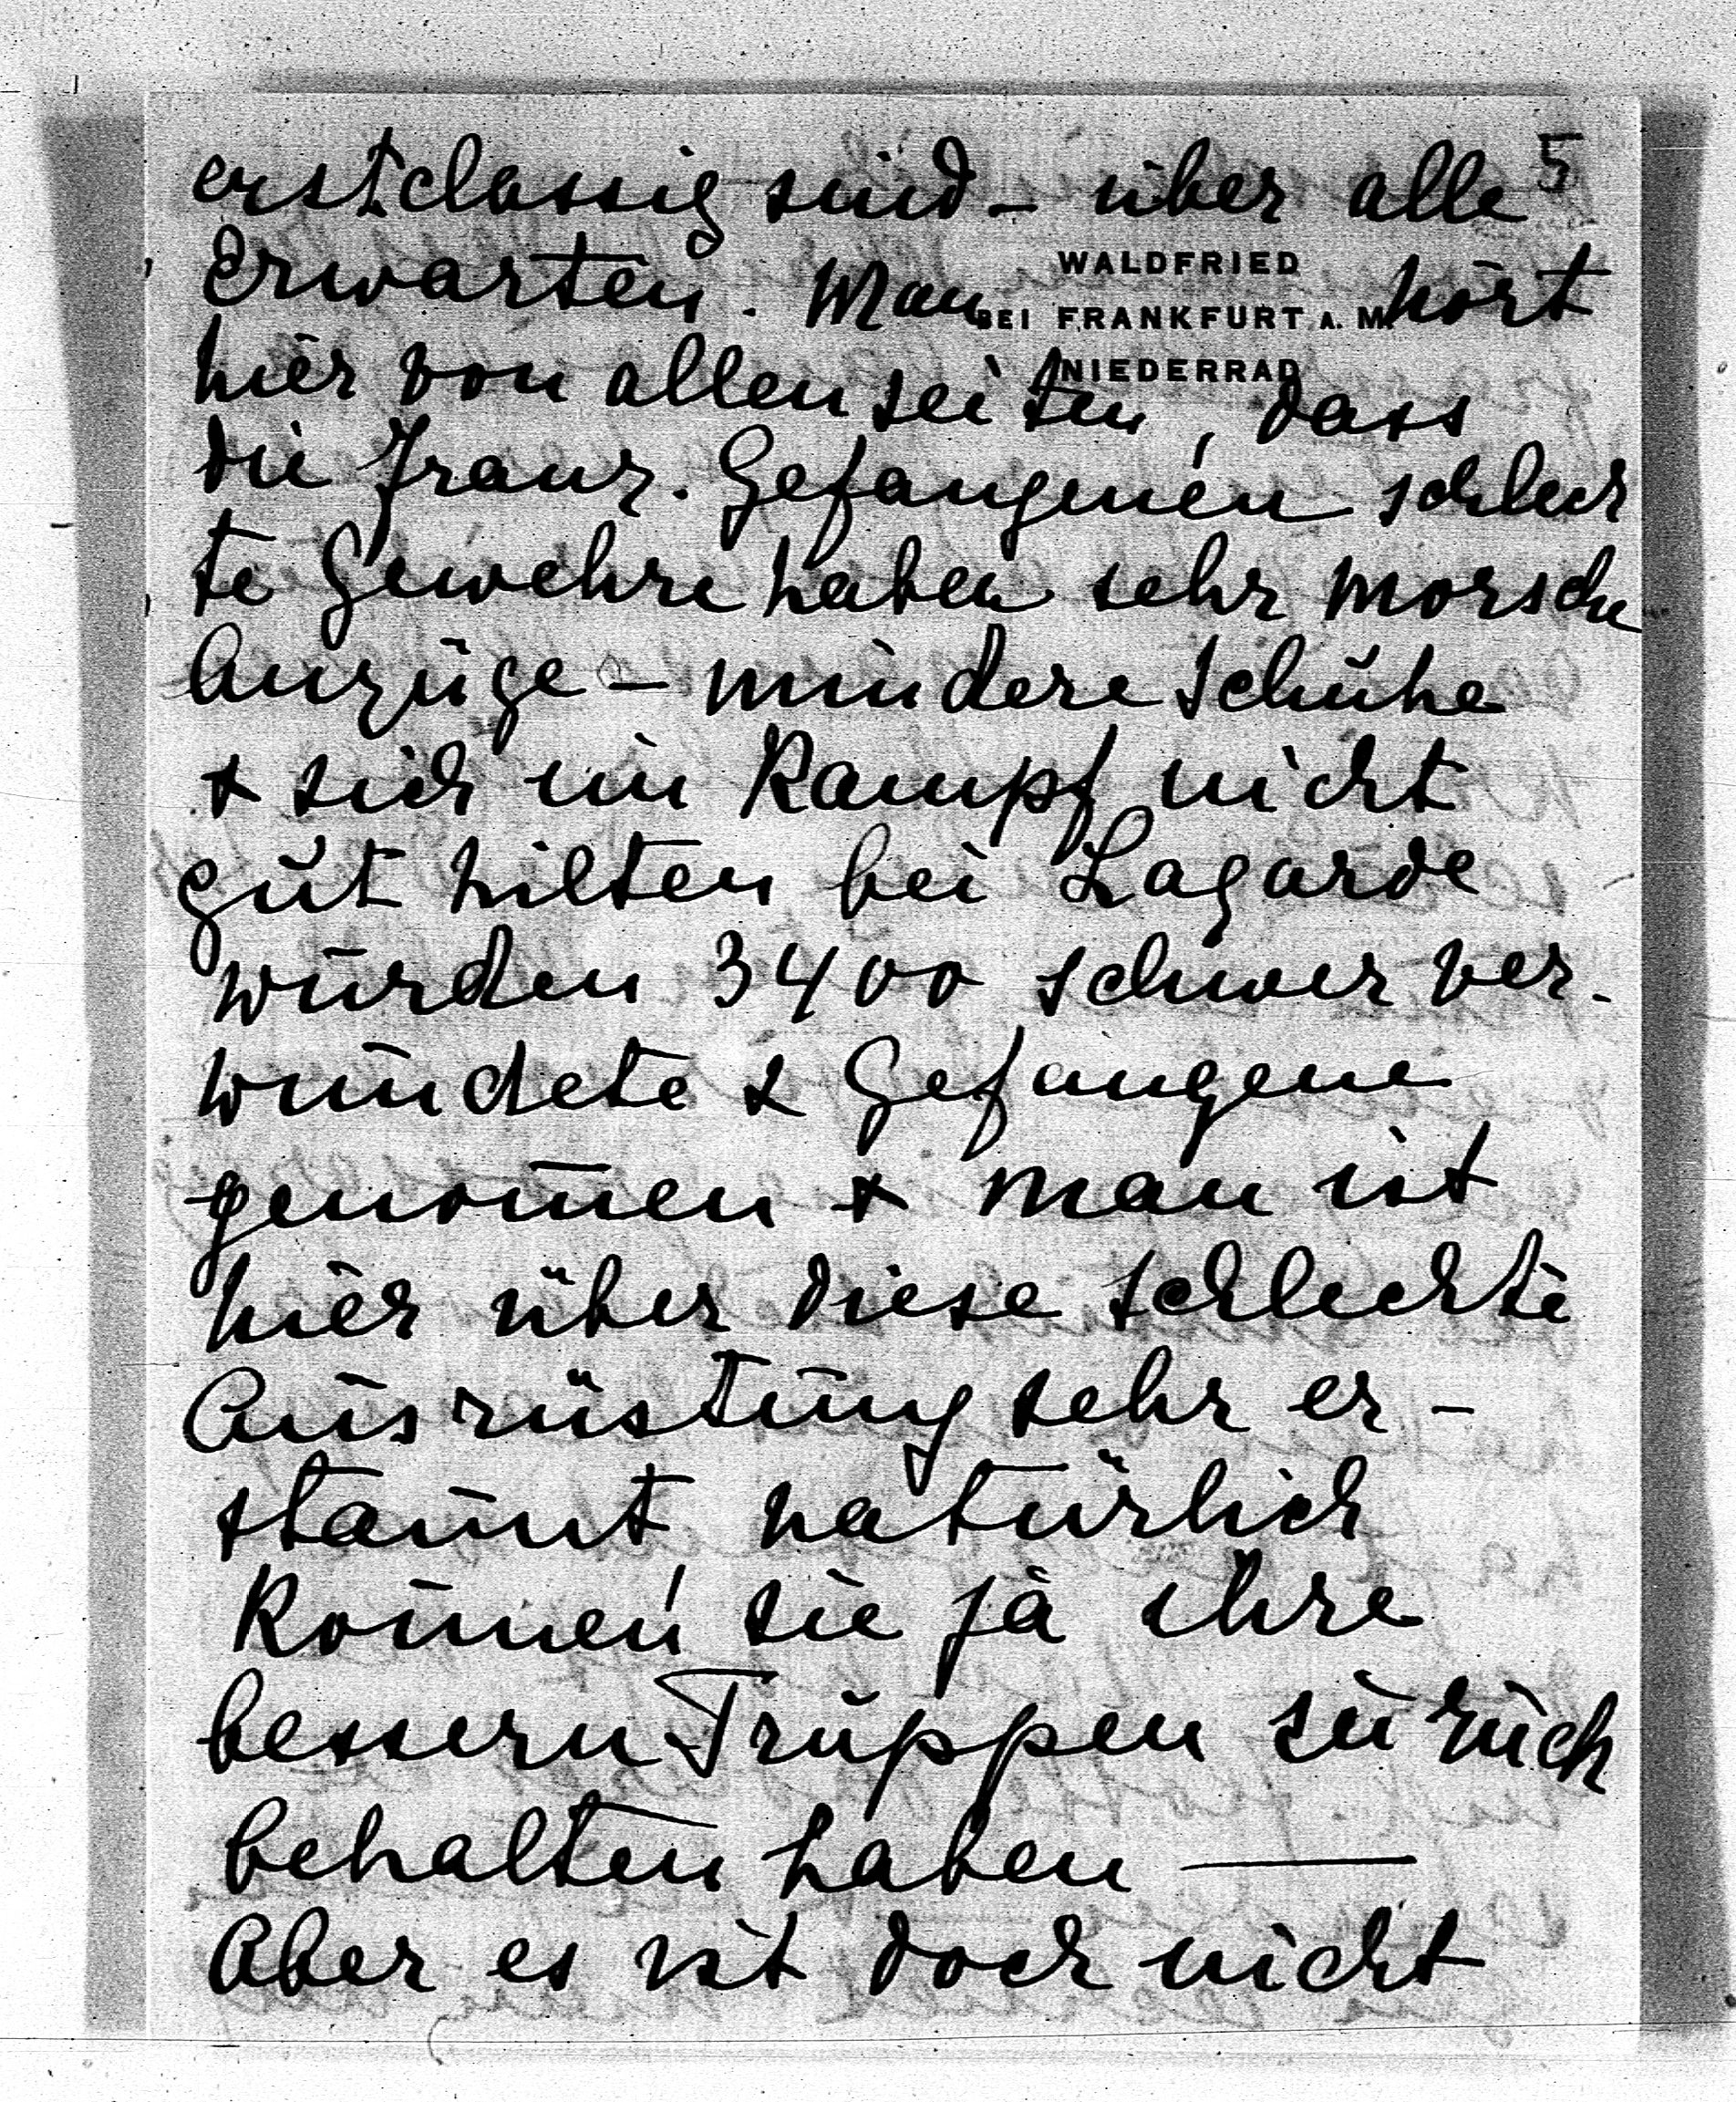 erstclassig sind – über alle 5
WALDFRIED
Erwarten. Man hört
BEI FRANKFURT A. M.
NIEDERRAD
hier von allen seiten, dass
die Franz. Gefangenen schlech
te Gewehre haben sehr morsche
Anzüge – mindere Schuhe
& sich im Kampf nicht
gut hilten bei Lagarde
wurden 3400 schwer ver-
wundete & Gefangene
genom̅en & man ist
hier über diese schlechte
Ausrüstung sehr er-
staunt natürlich
können sie ja ihre
bessern Truppen zurück
behalten haben —
Aber es ist doch nicht